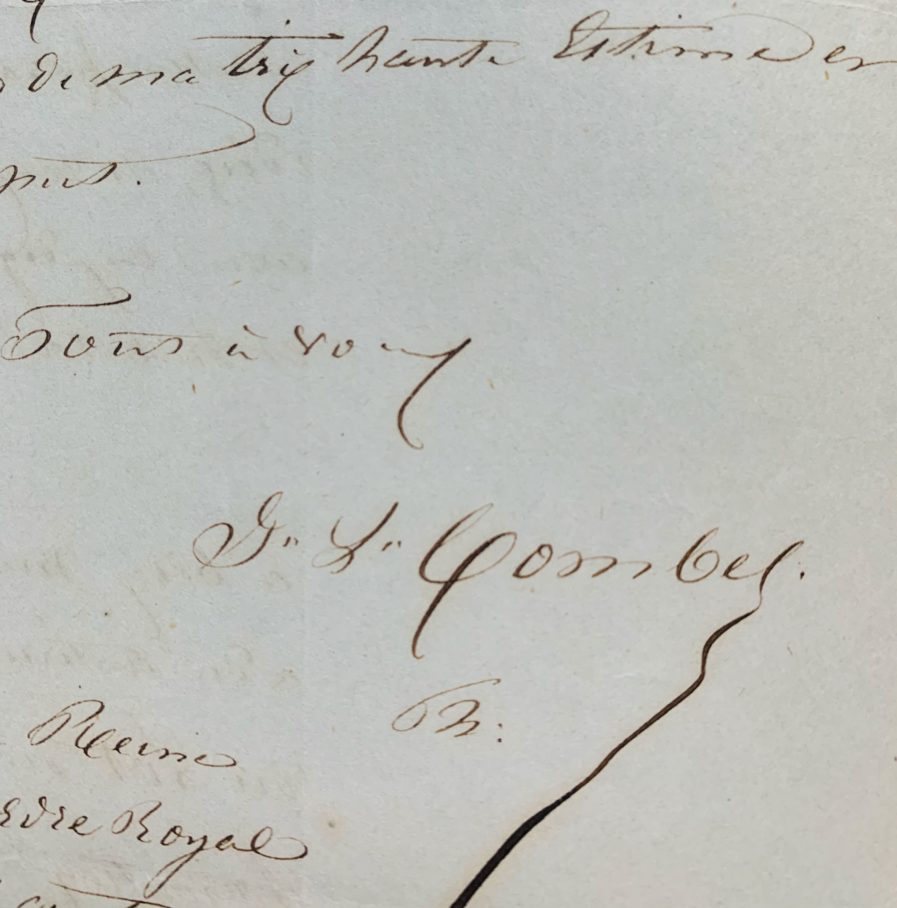 de ma très haute Estime et
Tout à vous
J. L. Combes.
Reine
Ordre Royal